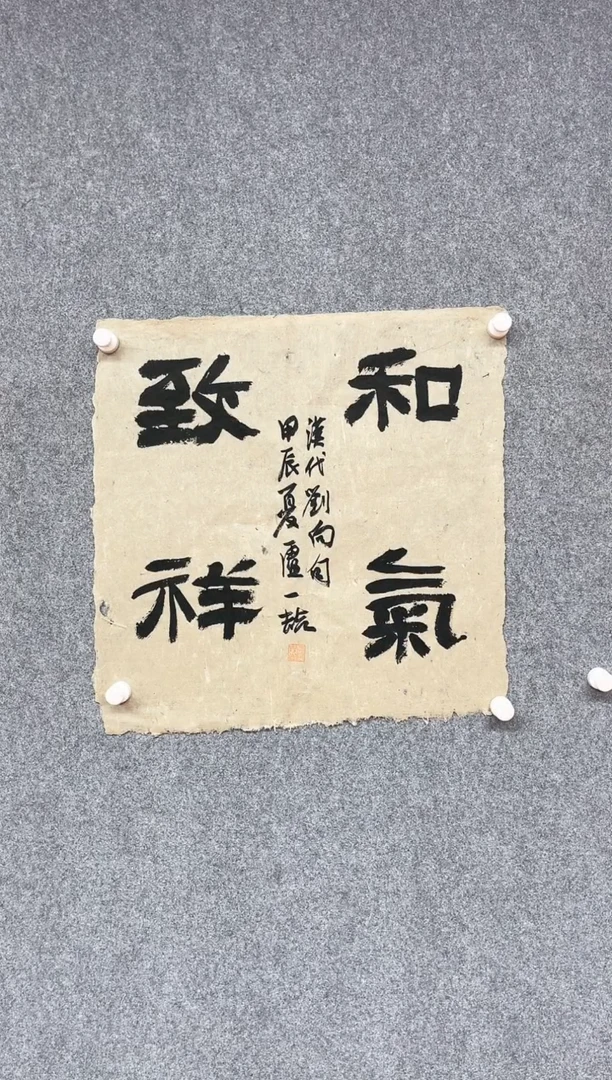 和氣
致祥
漢代劉向句
甲辰夏盧一喆